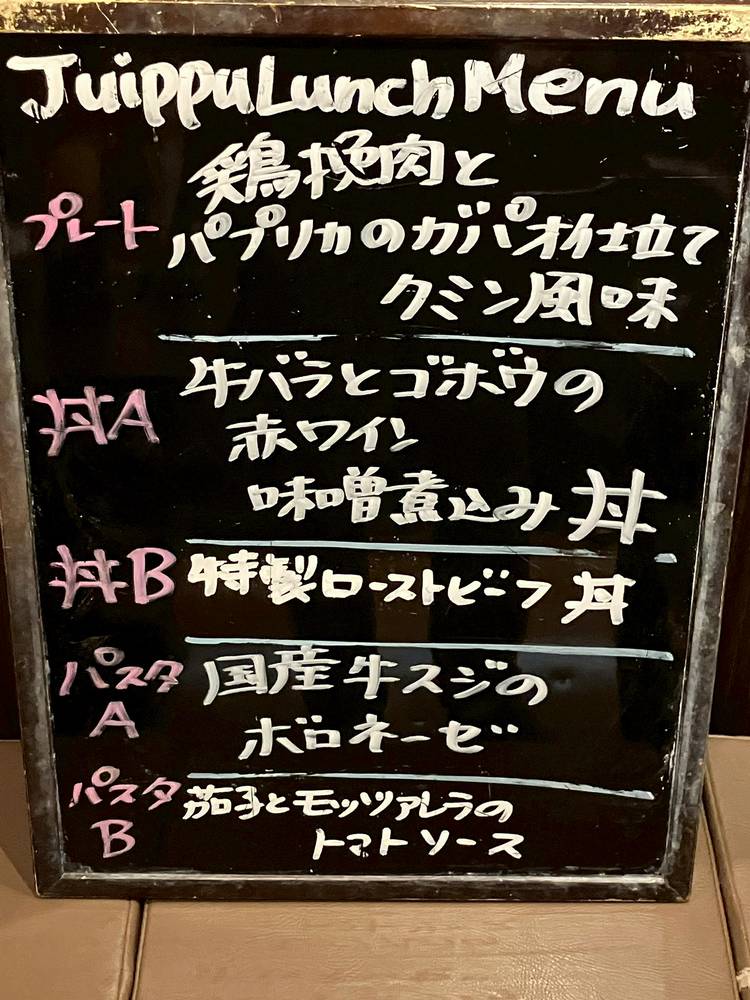 Juippu Lunch Menu
プレート
鶏挽肉と
パプリカのガパオ仕立て
クミン風味
丼A
牛バラとゴボウの
赤ワイン
味噌煮込み丼
丼B
特製ローストビーフ丼
パスタ
A
国産牛スジの
ボロネーゼ
パスタ
B
茄子とモッツァレラの
トマトソース